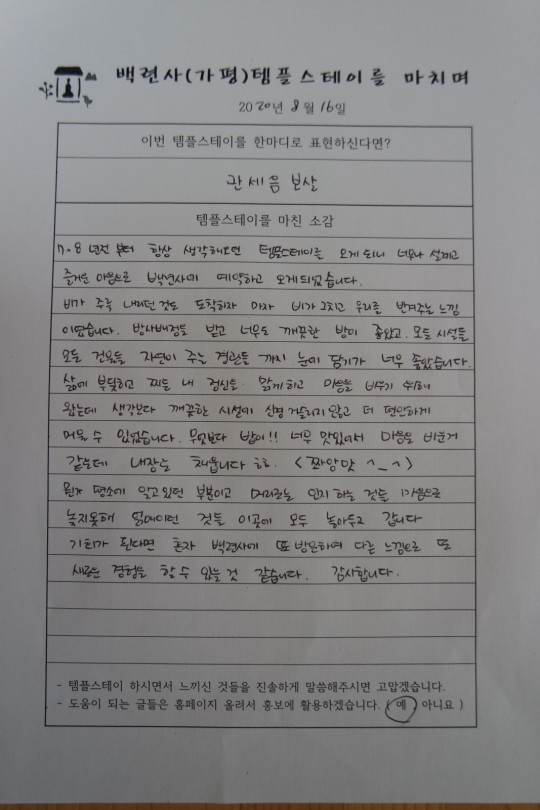 백련사(가평)템플스테이를 마치며
2020년 8월 16일
이번 템플스테이를 한마디로 표현하신다면?
관세음 보살
템플스테이를 마친 소감
7-8 년전 부터 항상 생각해오던 템플스테이를 오게 되니 너무나 설레고
즐거운 마음으로 백련사에 예약하고 오게되었습니다.
비가 주륵 내리던 것도 도착하자 마자 비가 그치고 우리를 반겨주는 느낌
이였습니다. 방사배정을 받고 너무도 깨끗한 방이 좋았고, 모든 시설들
모든 건물들 자연이 주는 경관들 까지 눈에 담기가 너무 좋았습니다.
삶에 부딪히고 찌든 내 정신을 맑게하고 마음을 비우기 위해
왔는데 생각보다 깨끗한 시설에 신경 거슬리지 않고 더 편안하게
머물 수 있었습니다. 무엇보다 밥이!! 너무 맛있어서 마음을 비운거
같은데 내장은 채웁니다 ㅎㅎ. <짜앙맛 ^_^>
뭔가 평소에 알고 있던 부분이고 머리로는 인지 하는 것을 마음으로
놓지못해 얽매이던 것들 이곳에 모두 놓아두고 갑니다
기회가 된다면 혼자 백련사에 또 방문하여 다른 느낌으로 또
새로운 경험을 할 수 있을 것 같습니다. 감사합니다.
- 템플스테이 하시면서 느끼신 것들을 진솔하게 말씀해주시면 고맙겠습니다.
- 도움이 되는 글들은 홈페이지 올려서 홍보에 활용하겠습니다. ( 예 아니요 )